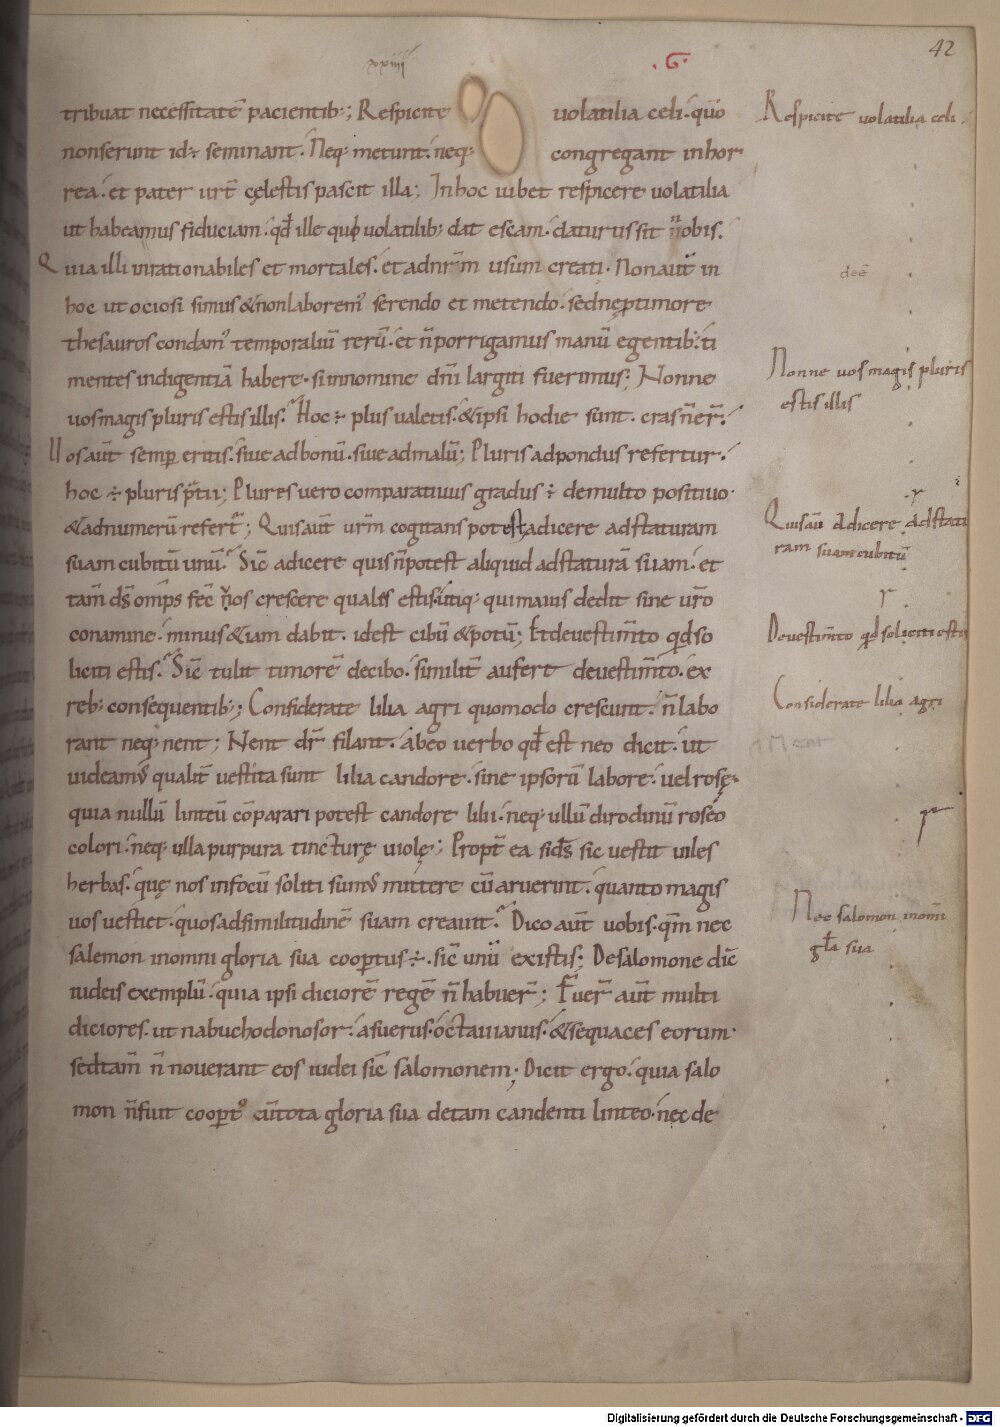 42
xxiiii
.G.
tribuat necessitatē pacientib; Respicite uolatilia celi. quō
non serunt id ÷ seminant. Neq; metunt. neq; congregant in hor
rea. et pater urī cęlestis pascit illa; In hoc iubet respicere uolatilia
ut habeamus fiduciam. qđ ille qui uolatilib; dat escam. daturus sit nobis.
Quia illi inrationabiles et mortales. et ad nr̄m usum creati. Non aūt in
hoc ut ociosi simus & non laborem᾽ serendo et metendo. sed nę p timore
thesauros condam᾽ temporaliū rerū. et n̄ porrigamus manū egentib; ti
mentes indigentiā habere. si in nomine dn̄i largiti fuerimus; Nonne
uos magis pluris estis illis. Hoc ÷ plus ualetis. & ipsi hodie sunt. cras n̄ er̄.
Uos aūt semp eritis. siue ad bonū. siue ad malū; Pluris ad pondus refertur.
hoc ÷ pluris p̄tii; Plures uero comparatiuus gradus ÷ de multo positiuo.
& ad numerū refert᾽; Quis aūt urm̄ cogitans potest adicere ad staturam
suam cubitū unū. Sic̄ adicere quis n̄ potest aliquid ad staturā suam. et
tam̄ ds̄ omp̄s fec̄ nos crescere quales estis. utiq; qui maius dedit sine ur̄o
conamine. minus & iam dabit. id est cibū & potū; Et de uestim̄to qđ so
liciti estis. Sic̄ tulit timorē de cibo. similit̄ aufert de uestim̄to. ex
reb; consequentib;; Considerate lilia agri quomodo crescunt. n̄ labo
rant neq; nent; Nent dr̄ filant. Ab eo uerbo qđ est neo dicit. ut
uideam᾽ qualit̄ uestita sunt lilia candore. sine ipsorū labore. uel rosę.
quia nullū linteū cōparari potest candore lilii. neq; ullū dirodinū roseo
colori. neq; ulla purpura tincturę uiolę; Propt̄ ea si ds̄ sic uestit uiles
herbas. quę nos in focū soliti sum᾽ mittere cū aruerint. quanto magis
uos uestiet. quos ad similitudinē suam creauit. Dico aūt uobis. qm̄ nec
salemon in omni gloria sua coopertus ÷. sic̄ unū ex istis; De salomone dic̄
iudeis exemplū. quia ipsi diciorē regē n̄ habuer̄; Fuer̄ aūt multi
diciores. ut nabuchodonosor. asuerus. octauianus. & sequaces eorum.
sed tam̄ n̄ nouerant eos iudei sic̄ salomonem; Dicit ergo. quia salo
mon n̄ fuit coopt᾽ cū tota gloria sua de tam candenti linteo. nec de
Respicite uolatilia celi.
deē
Nonne uos magis pluris
estis illis
Quis aū adicere ad statu
ram suam cubitū
De uestim̄to qđ soliciti estis
Considerate lilia agri
Nec salomon in omi
gl̄a sua
Digitalisierung gefördert durch die Deutsche Forschungsgemeinschaft - DFG